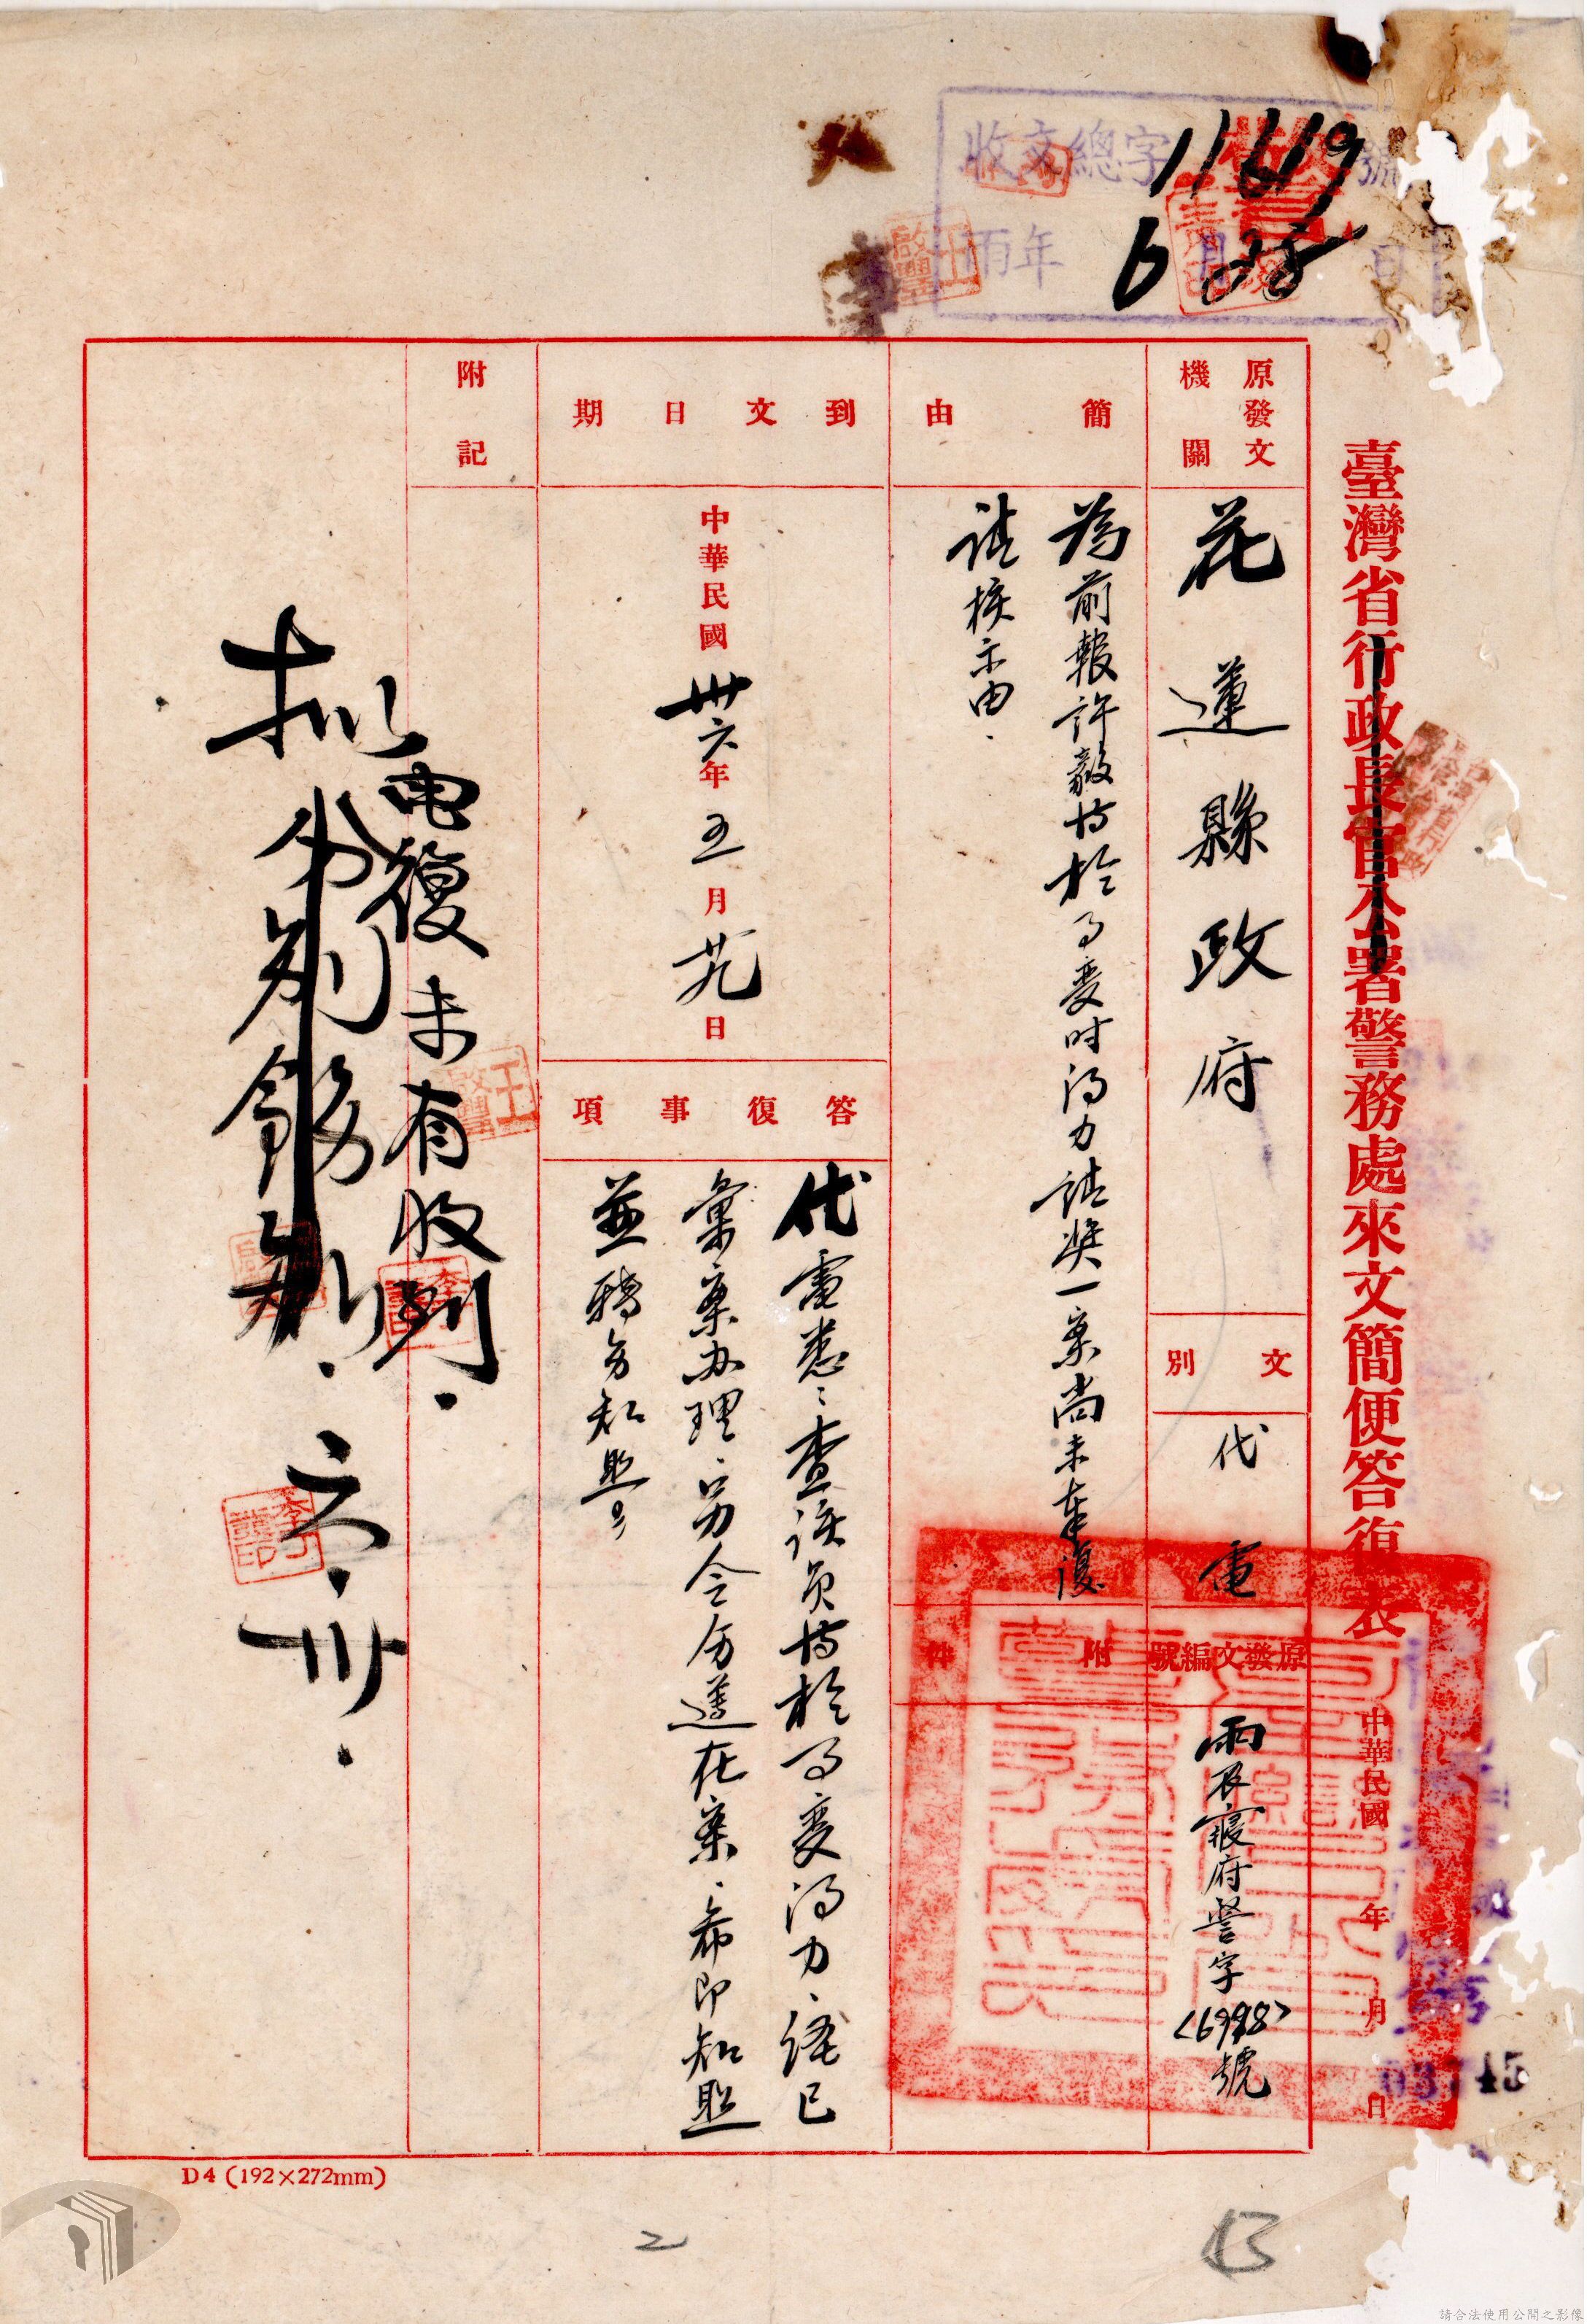 收文總字 11619 號
丙年 6 月 日
臺灣省行政長官公署警務處來文簡便答復表
中華民國 年 月 日
原發文機關
花蓮縣政府
文別
代電
原發文編號
丙辰寢府警字
<6998>
號
簡由
為前報許毅博於事變時得力請獎一案尚未奉復
請核示由
附件
到文日期
中華民國卅六年五月廿九日
答復事項
代電悉查該員博於事變得力經已
彙案办理另令分遵在案希即知照
並轉知照
附記
电復未有收到
擬分別飭知
六卅
D4 (192×272mm)
2
13
請合法使用公開之影像